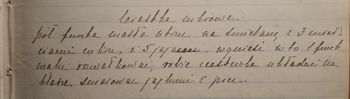 Ciastka cukrowe
pół funta masła utrzeć na śmietanę z 3 ma
ciami cukru, z 5 jajami wgnieść w to 1 funt
mąki rozwałkować, robić ciasteczka układać na
blachę smarować jajkami i piec.